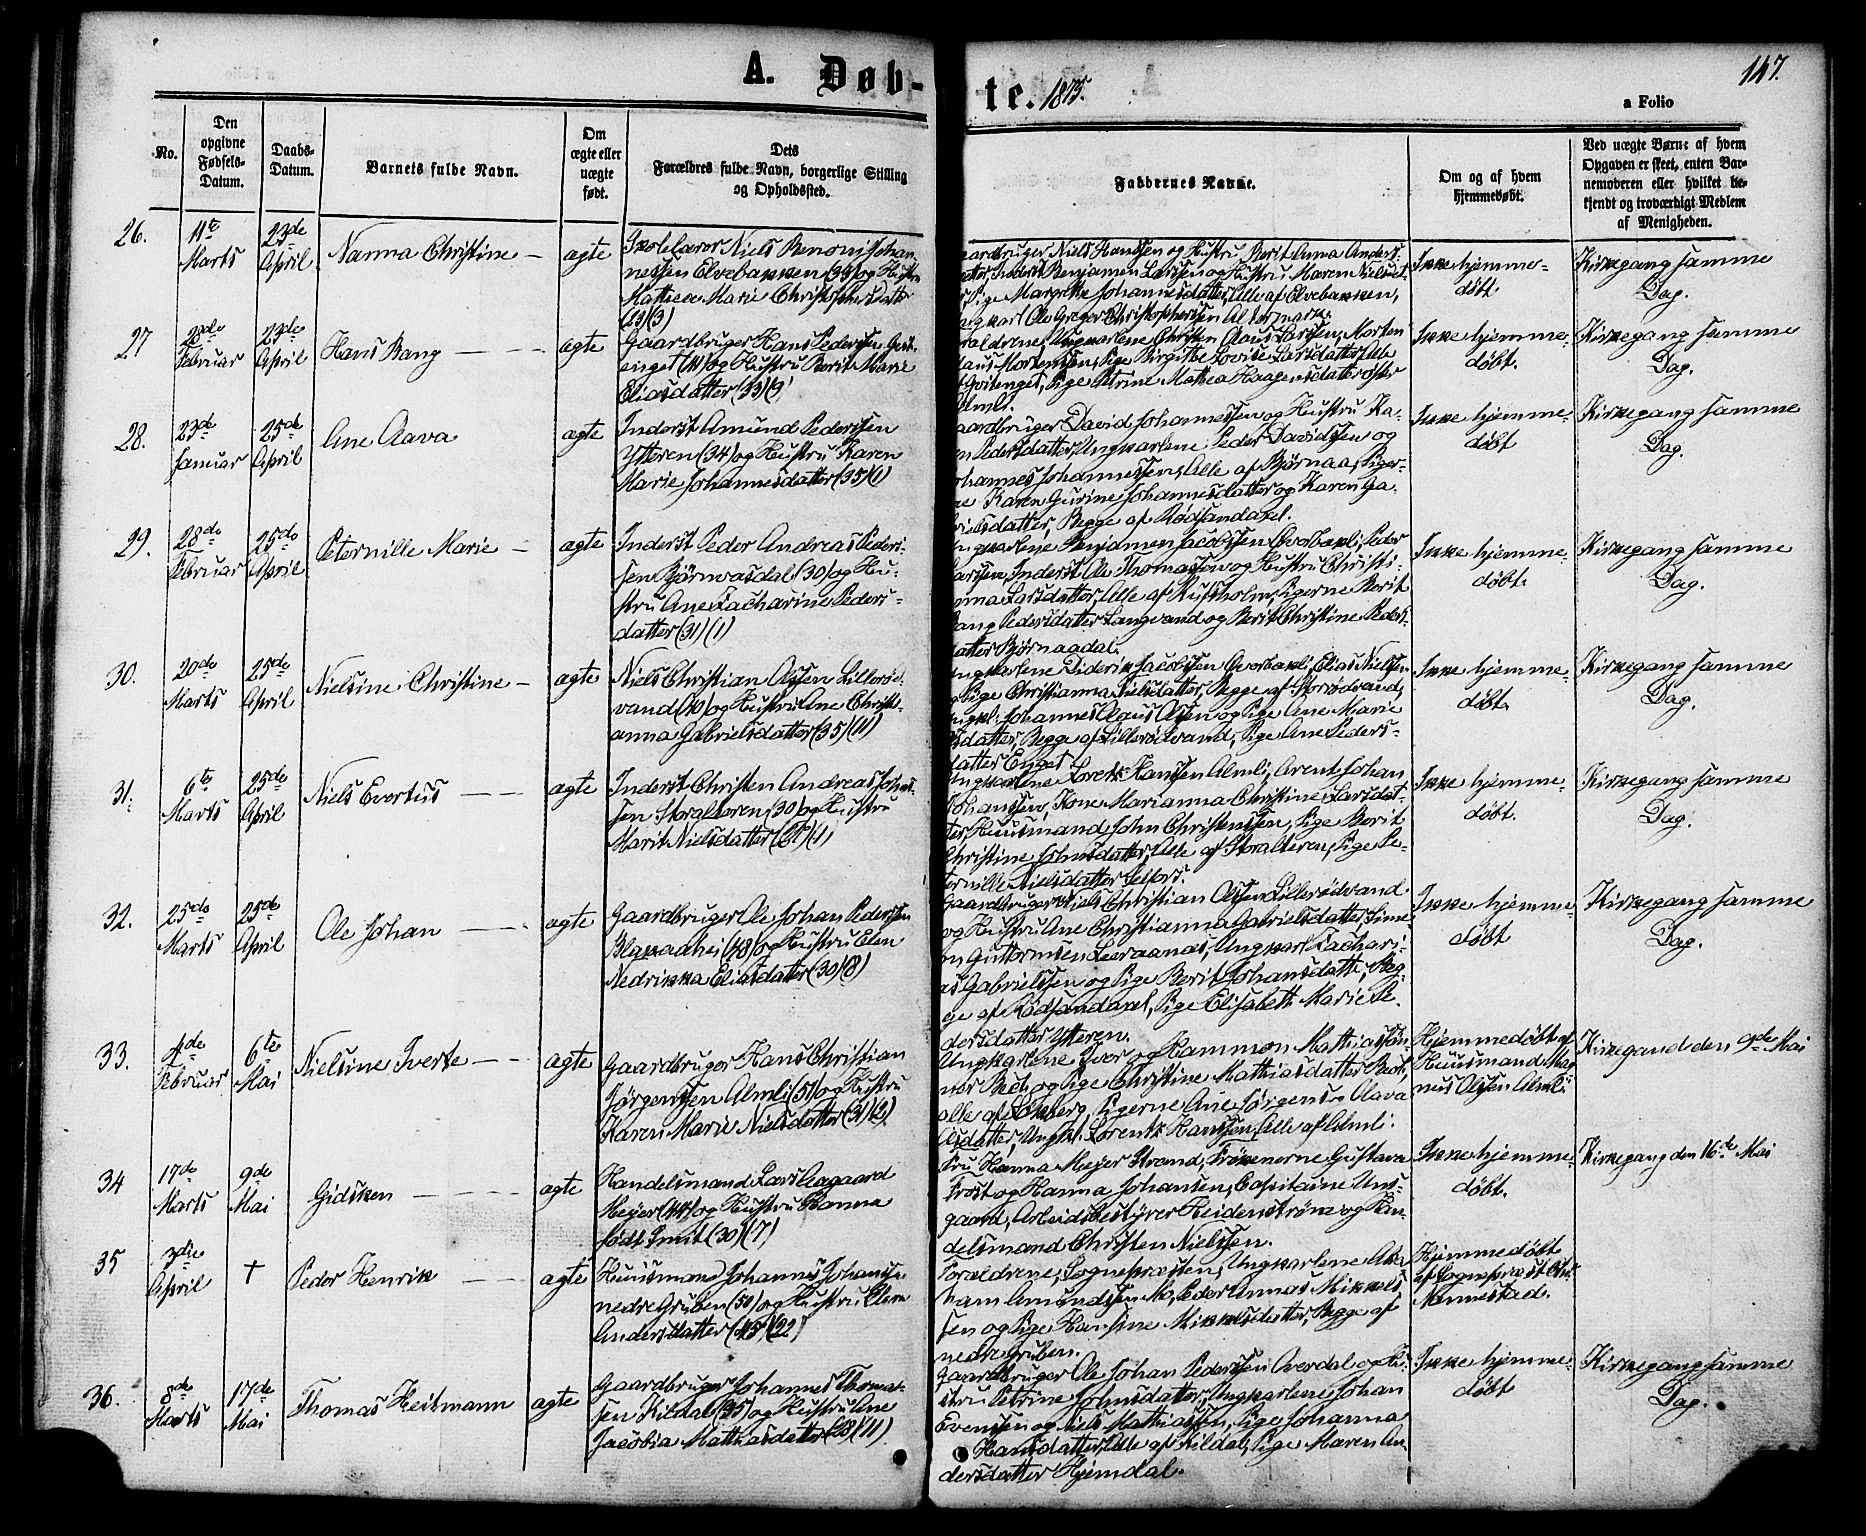 A. Døb-
te. 1875.
147.
a Folio
No.
Den opgivne Fødsels-Datum.
Daabs-Datum.
Barnets fulde Navn.
Om ægte eller uægte født.
Dets Forældres fulde Navn, borgerlige Stilling og Opholdssted.
Faddernes Navne.
Om og af hvem hjemmedøbt.
Ved uægte Børn: af hvem Opgaven er skeet, enten Barnemoderen eller hvilket bekjendt og troværdigt Medlem af Menigheden.
26.
11te Marts
23de April
Nanna Christine
ægte
Skolelærer Niels Benoni Johan-
nessen Elvebakken (33) og Hustru
Mathea Marie Christophersdatter
(3)
aardbruger Niels Hanssen og Hustru Berit Anna Anders-
datter, Inderst Benjamen Larssen og Hustru Maren Nielsdat-
r, Pige Margrethe Johannesdatter, Alle af Elvebakken,
ungkarl Ole Greger Christophersen
Ikke hjemme-
døbt
Kirkegang samme
Dag.
27
Februar
23de April
Hans Bang
ægte
Gaardbruger Hans Pederssen
og Hustru Berit Marie
Eliasdatter (33)
oraldrene, Ungkarlene Christen Claus Larssen, Morten
laus Mortenssen, Pige Birgitte Lovise Larsdatter, Alle
Pige Petrine Mathea Haagensdatter
Almli.
Ikke hjemme-
døbt.
Kirkegang samme
Dag.
28.
23de Januar
25de April
Ane Aava
ægte
Inderst Amund Pederssen
Ytteren (34) og Hustru Karen
Marie Johannesdatter (35) (1)
aardbruger David Johannessen og Hustru Ka-
n Pedersdatter, Ungkarlene Peder Davidssen og
ohannes Johannessen, Alle af Bjørnaa, Piger-
ne Karen Gurine Johannesdatter og Karen Ga-
rielsdatter, Begge af Rødsandaxel.
Ikke hjemme-
døbt
Kirkegang samme
Dag.
29.
28de Februar
25de April
Peternille Marie
ægte
Inderst Peder Andreas Peders-
sen Bjørnaasdal (30) og Hu-
stru Ane Zacharine Peders-
datter (31) (1)
ngkarlene Benjamen Jacobssen Overbakli, Peder
Larssen, Inderst Ole Thomassen og Hustru Christi-
nna Larsdatter, Alle af Rufsholm, Pigerne Berit
Bang Pedersdatter Langvand og Berit Christine Peders-
datter Bjørnaadal.
Ikke hjemme-
døbt.
Kirkegang samme
Dag.
30.
20de Marts
25de April
Nielsine Christine
ægte
Niels Christian Olssen Lillerød-
vand (40) og Hustru Ane Christi-
anna Gabrielsdatter (35) (11)
ngkarlene Diderik Jacobssen Overbakli, Elias Nielssen
og Pige Christianna Nielsdatter, Begge af Storrødvand,
ungk. Johannes Claus Olsen og Pige Ane Marie
Olsdatter, Begge af Lillerødvand, Pige Ane Peders-
datter Enget.
Ikke hjemme-
døbt.
Kirkegang samme
Dag.
31.
6te Marts
25de April
Niels Evertus
ægte
Inderst Christen Andreas Johns-
sen Storalteren (30) og Hustru
Marit Nielsdatter (1)
Ungkarlene Lorentz Hanssen Almli, Arent Johan
Johanssen, Kone Marianna Christine Larsdat-
ter, Huusmand John Christenssen, Pige Berit
Christine Johnsdatter, Alle af Storalteren, Pige Pe-
ternille Nielsdatter Selfors.
Ikke hjemme-
døbt.
Kirkegang samme
Dag.
32.
25de Marts
25de April
Ole Johan
ægte
Gaardbruger Ole Johan Pederssen
Blakaadhei (48) og Hustru Elen
Nedrikka Eliasdatter (30) (8)
Gaardbruger Niels Christian Olssen Lillerødvand
og Hustru Ane Christianna Gabrielsdatter, Sime-
on Guttormsen Leeraanas, Ungkarl Zachari-
as Gabrielssen og Pige Berit Johansdatter, Beg-
ge af Rødsandaxel, Pige Elisabeth Marie Pe-
dersdatter Ytteren.
Ikke hjemme-
døbt
Kirkegang samme
Dag.
33.
Februar
6te Mai
Nielsine Iverte
ægte
Gaardbruger Hans Christian
Jørgenssen Almli (51) og Hustru
Karen Marie Nielsdatter (31) (2)
Ungkarlene Iver og Hammon Mathiassøn-
ner Bech og Pige Christine Mathiasdatter Bech,
alle af Langberg, Pigerne Ane Jørgens og Olava
Olsdatter, Ungk. Lorentz Hanssen, Alle af Almli.
Hjemmedøbt af
Huusmand Mag-
nus Olssen Almli
Kirkegand den 9de Mai
34
17de Marts
9de Mai
Gidsken
ægte
Handelsmand Lars Aagaard
Meyer (44) og Hustru Hanna
født Smit (30) (7)
Fru Hanna Meyer Strand, Frøkenerne Gustava
Frost og Hanna Johansen, Capitaine Uns-
gaard, Arbeidsbestyrer Heidenstrøm og Han-
delsmand Christen Nielssen.
Ikke hjemme-
døbt.
Kirkegang den 16de Mai
35
3die April
†
Peder Henrik
ægte
Huusmand Johannes Johanssen
nedre Gruben (50) og Hustru Elen
Andersdatter (45) (22)
Foraldrene, Sognepræsten, Ungkarlene Abra-
ham Amundssen Mo, Peder Annas Mikkels-
sen og Pige Hansine Mikkelsdatter, Begge af
nedre Gruben.
Hjemmedøbt
af Sognepræst
Nannestad.
36.
8de Marts
17de Mai
Thomas Heitmann
ægte
Gaardbruger Johannes Thomas-
sen Kildal (35) og Hustru Ane
Jacobia Mathiasdatter (28) (11)
Gaardbruger Ole Johan Pederssen Averdal og Hu-
stru Petrine Johnsdatter, Ungkarlene Johan
Evenssen og Nils Mathiassen, Pige Johanna
Hansdatter, Alle af Kildal, Pige Maren An-
dersdatter Hjemdal.
Ikke hjemme-
døbt
Kirkegang samme
Dag.